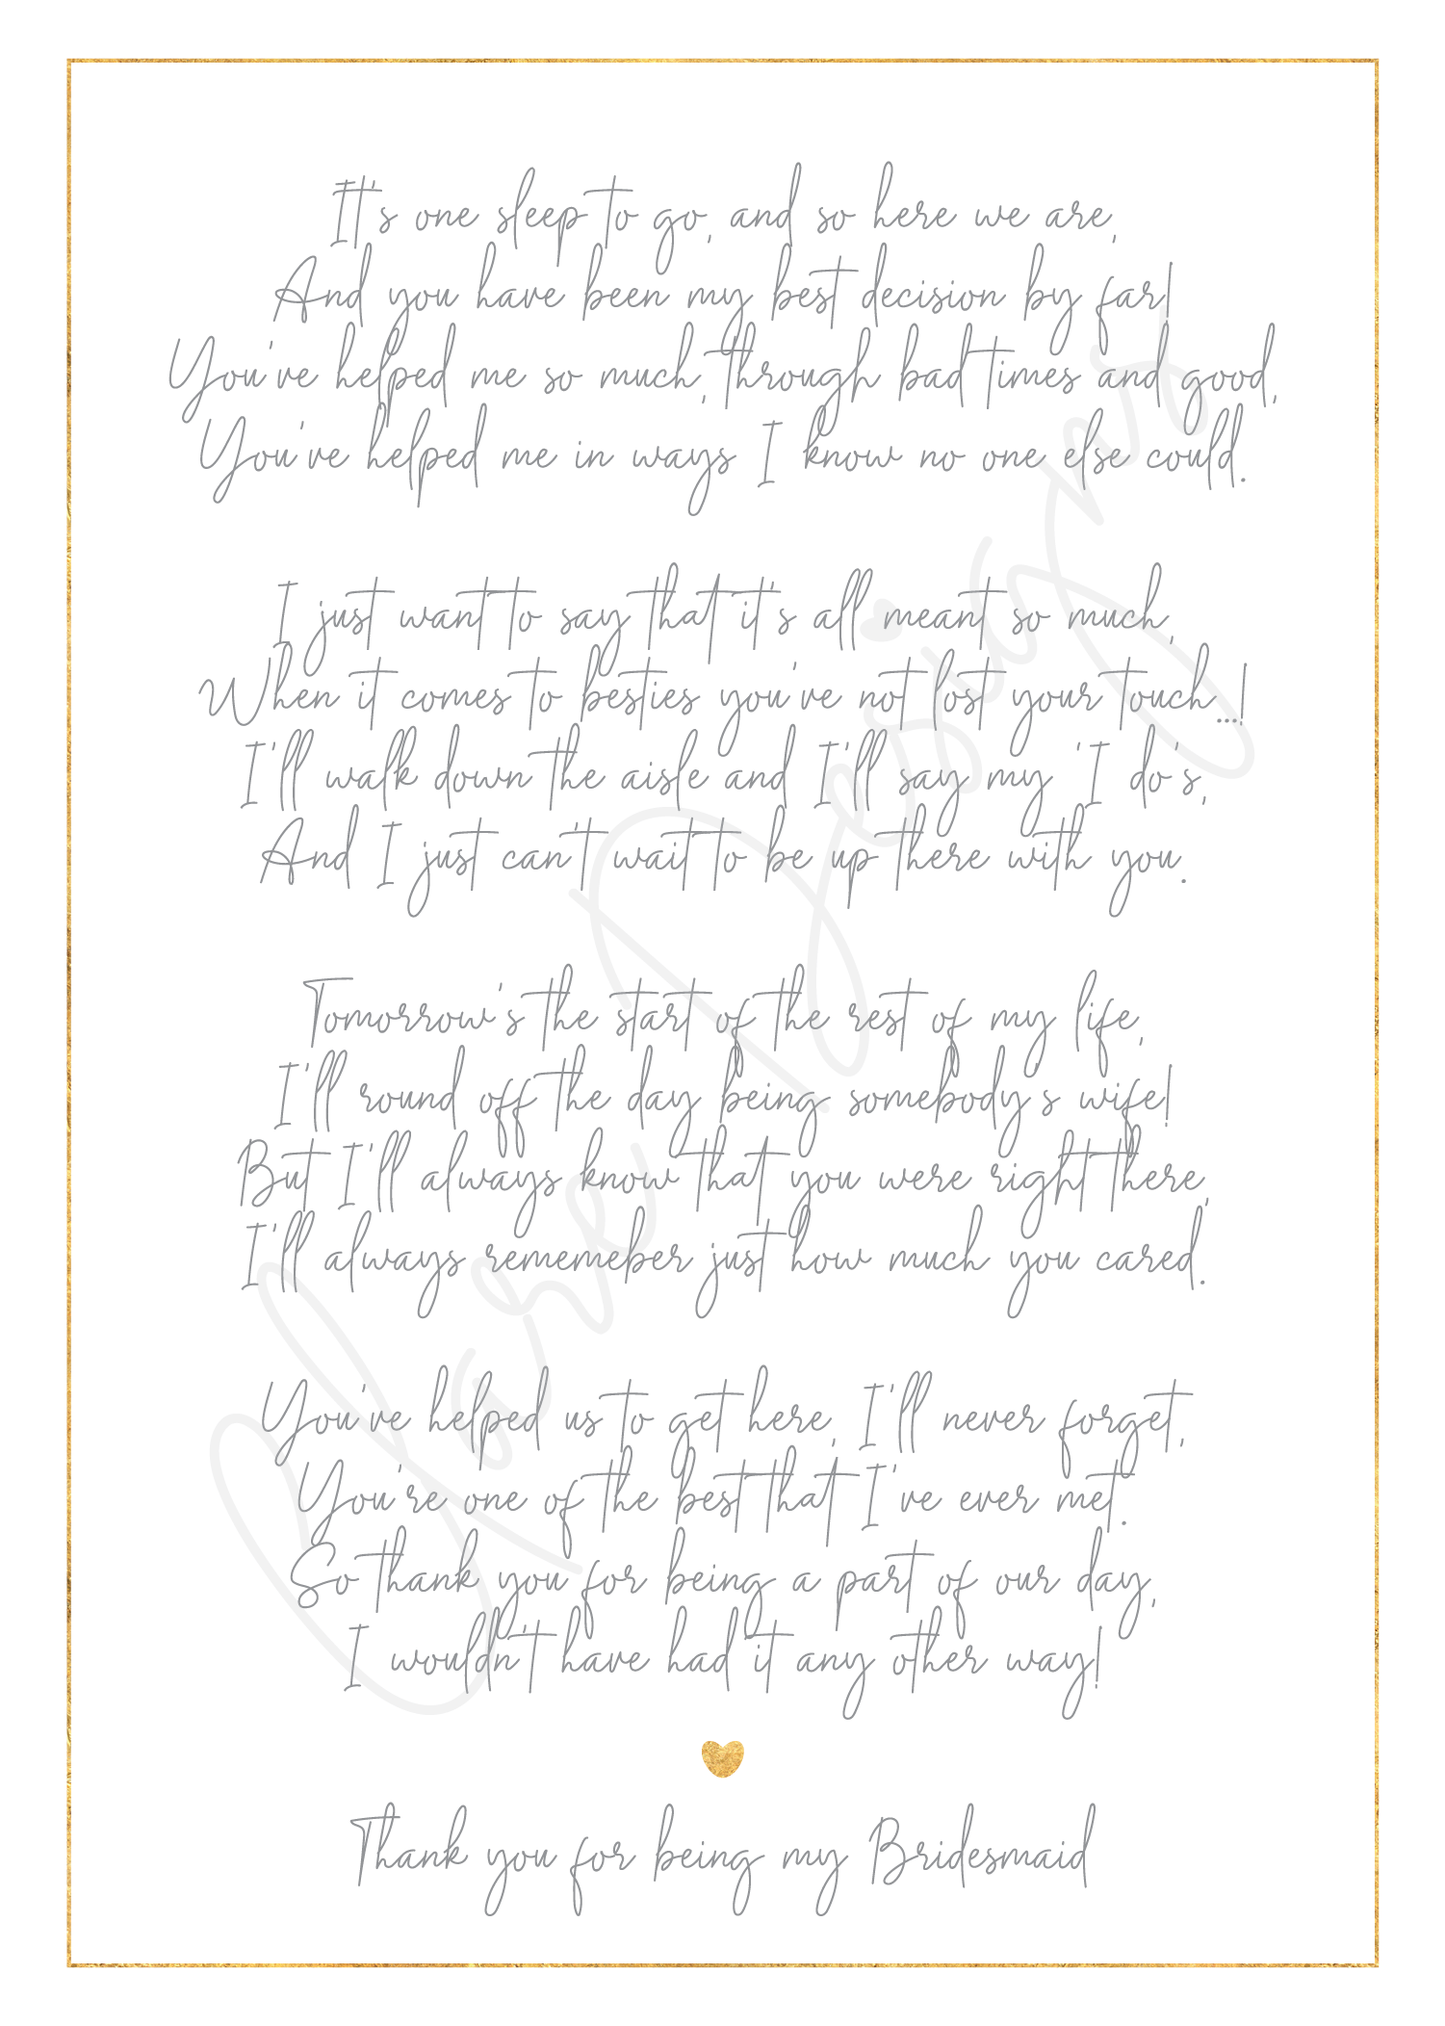 It's one sleep to go, and so here we are,
And you have been my best decision by far!
You've helped me so much, through bad times and good,
You've helped me in ways I know no one else could.
I just want to say that it's all meant so much,
When it comes to besties you've not lost your touch...!
I'll walk down the aisle and I'll say my 'I do's,
And I just can't wait to be up there with you.
Tomorrow's the start of the rest of my life,
I'll round off the day being somebody's wife!
But I'll always know that you were right there,
I'll always rememeber just how much you cared.
You've helped us to get here, I'll never forget,
You're one of the best that I've ever met.
So thank you for being a part of our day,
I wouldn't have had it any other way!
Thank you for being my Bridesmaid
Clare Designs